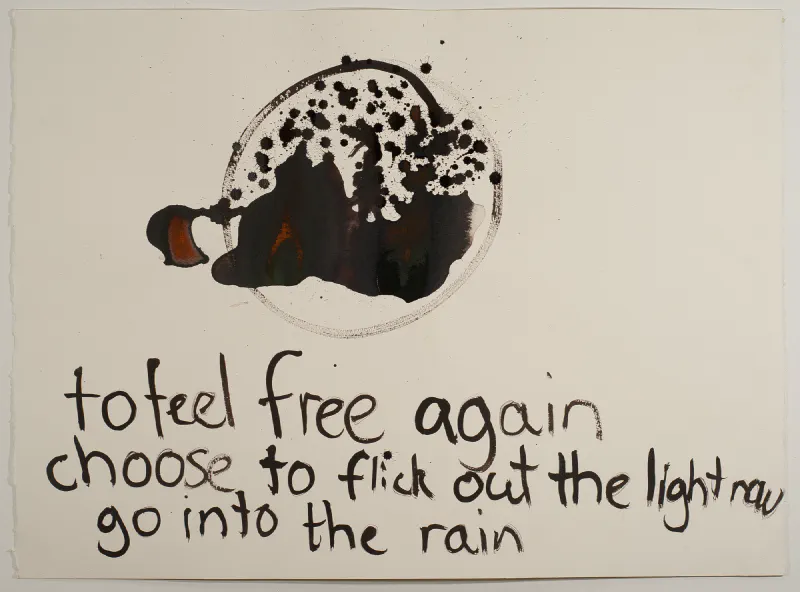 to feel free again
choose to flick out the light now
go into the rain